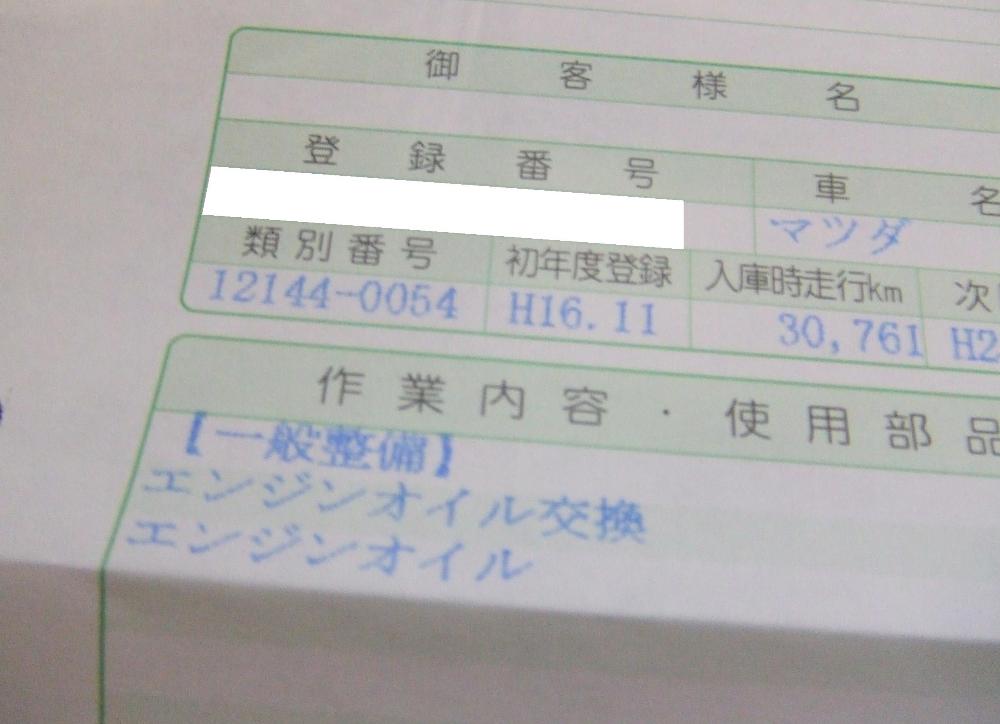 御客様名
登録番号 車名
マツダ
類別番号 初年度登録 入庫時走行km 次
12144-0054 H16.11 30,761 H2
作業内容・使用部品
【一般整備】
エンジンオイル交換
エンジンオイル